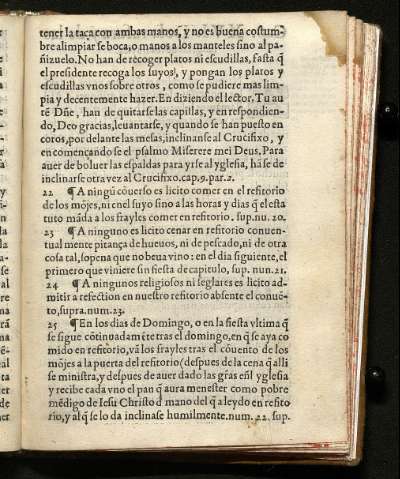 tener la taça con ambas manos, y no es buena costum-
bre alimpiarse boca, o manos a los manteles sino al pa-
ñizuelo. No han de recoger platos ni escudillas, fasta q̃
el presidente recoga los suyos, y pongan los platos y
escudillas vnos sobre otros, como se pudiere mas lim-
pia y decentemente hazer. En diziendo el lector, Tu au
tẽ Dñe, han de quitarse las capillas, y en respondien-
do, Deo gracias, leuantarse, y quando se han puesto en
coros, por delante las mesas, inclinanse al Crucifixo, y
en comẽçando se el psalmo Miserere mei Deus, Para
auer de boluer las espaldas para yrse al yglesia, hã se de
inclinarse otra vez al Crucifixo. cap. 9. par. 2.
22 ¶ A ningũ cõuerso es licito comer en el refitorio
de los mõjes, ni en el suyo sino a las horas y dias q̃ el esta
tuto mãda a los frayles comer en refitorio. sup. nu. 20.
23 ¶ A ninguno es licito cenar en refitorio conuen-
tual mente pitança de hueuos, ni de pescado, ni de otra
cosa tal, sopena que no beua vino: en el dia siguiente, el
primero que viniere sin fiesta de capitulo, sup. nun. 21.
24 ¶ A ningunos religiosos ni seglares es licito ad-
mitir a refection en nuestro refitorio absente el conuẽ-
to, supra. num. 23.
25 ¶ En los dias de Domingo, o en la fiesta vltima q̃
se sigue cõtinuadamẽte tras el domingo, en q̃ se aya co
mido en refitorio, vã los frayles tras el cõuento de los
mõjes a la puerta del refitorio (despues de la cena q̃ alli
se ministra, y despues de auer dado las gr̃as eñl yglesia
y recibe cada vno el pan q̃ aura menester como pobre
mẽdigo de Iesu Christo d̃ mano del q̃ a leydo en refito
rio, y al q̃ se lo da inclinase humilmente. num. 22. sup.